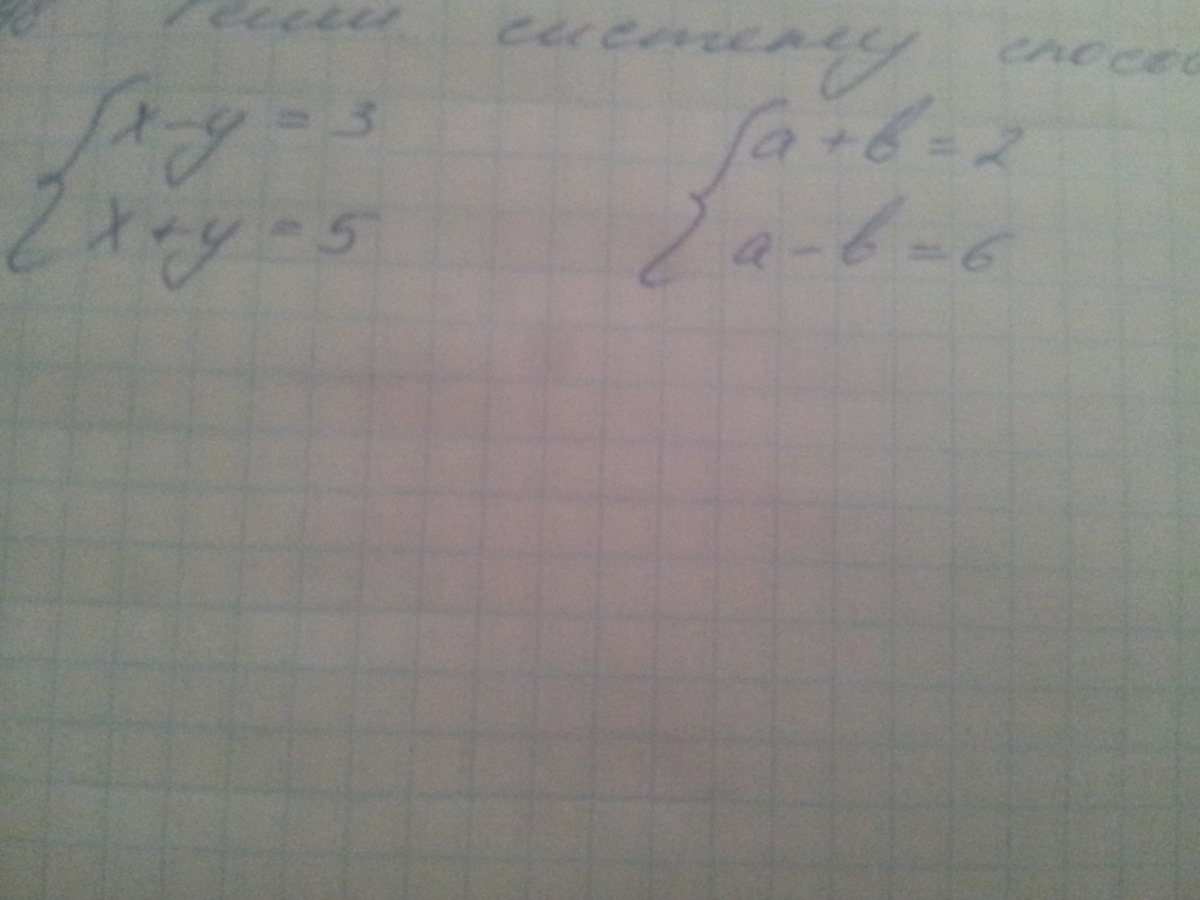 Реши систему способ
x - y = 3
x + y = 5
a + b = 2
a - b = 6